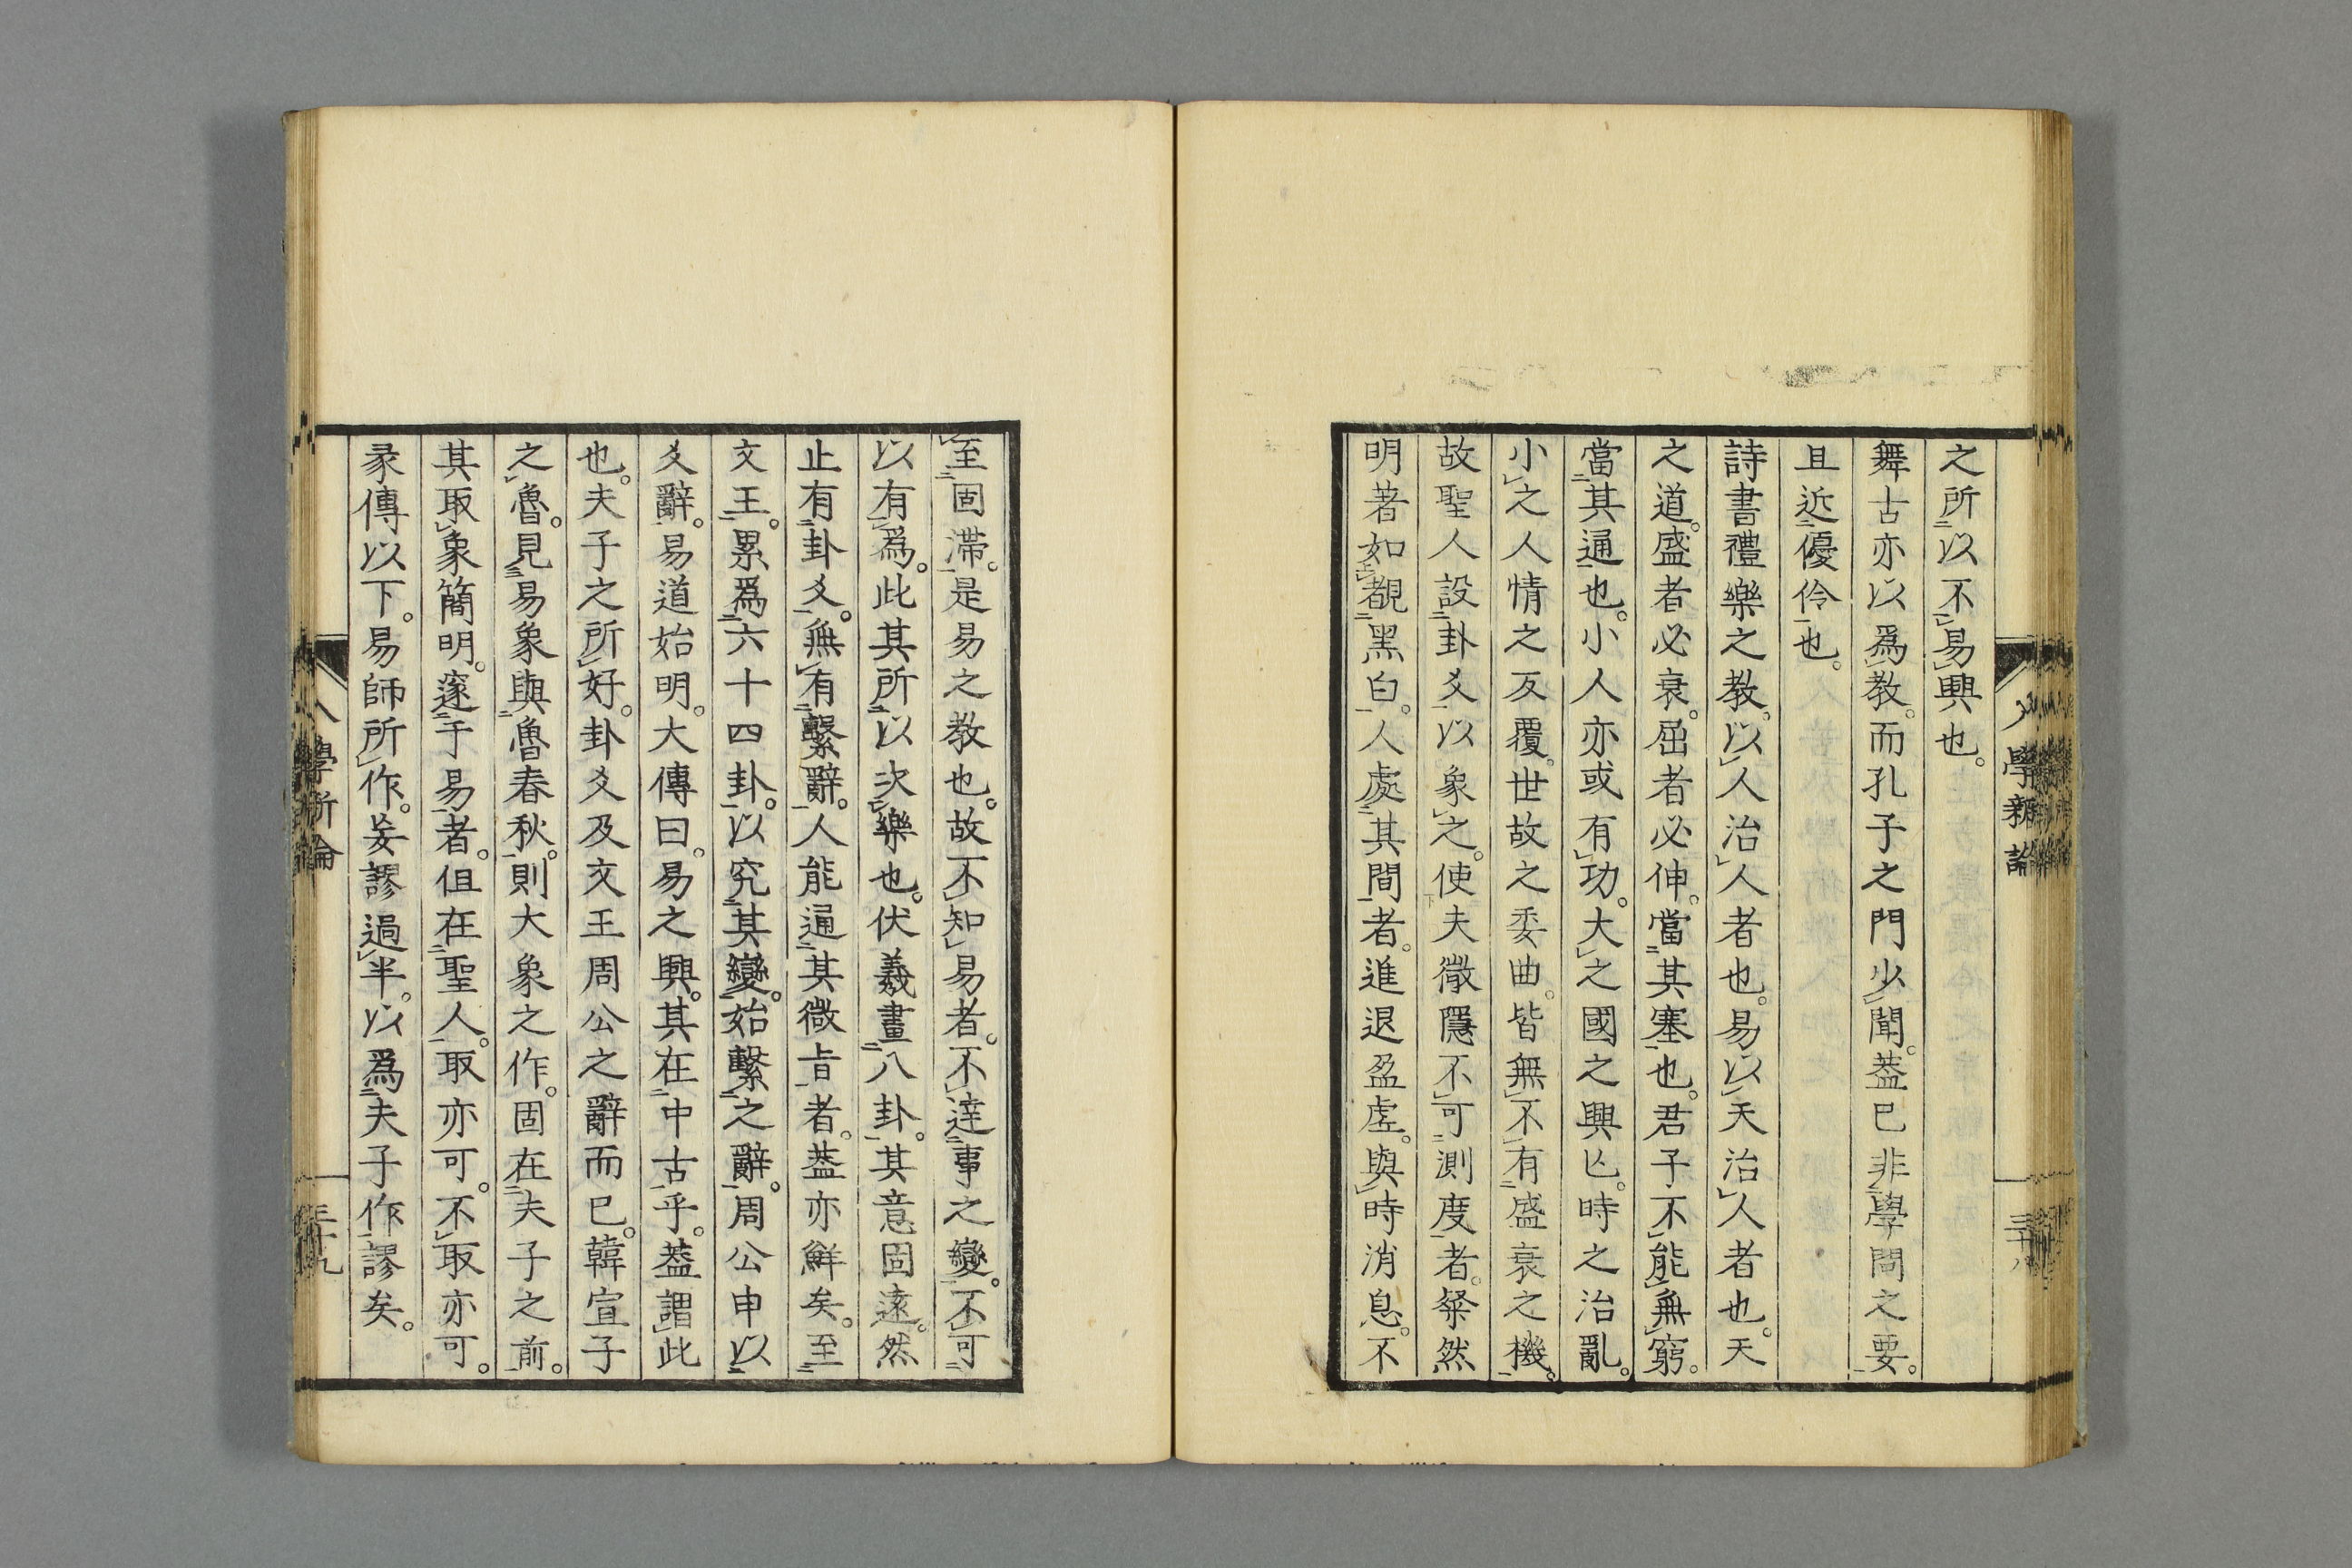 之所以不易興也。
舞古亦以爲教。而孔子之門少聞。蓋已非學問之要。
且近優伶也。
詩書禮樂之教。以人治人者也。易以天治人者也。天
之道。盛者必衰。屈者必伸。當其塞也。君子不能無窮。
當其通也。小人亦或有功。大之國之興亾。時之治亂。
小之人情之反覆。世故之委曲。皆無不有盛衰之機。
故聖人設卦爻以象之。使夫微隱不可測度者。粲然
明著如覩黑白。人處其間者。進退盈虛。與時消息。不
學新論
三十八
至固滯。是易之教也。故不知易者。不達事之變。不可
以有爲。此其所以次樂也。伏羲畫八卦。其意固遠。然
止有卦爻。無有繫辭。人能通其微旨者。蓋亦鮮矣。至
文王。累爲六十四卦。以究其變。始繫之辭。周公申以
爻辭。易道始明。大傳曰。易之興。其在中古乎。蓋謂此
也。夫子之所好。卦爻及文王周公之辭而已。韓宣子
之魯。見易象與魯春秋。則大象之作。固在夫子之前。
其取象簡明。邃于易者。但在聖人。取亦可。不取亦可。
彖傳以下。易師所作。妄謬過半。以爲夫子作謬矣。
學新論
三十九